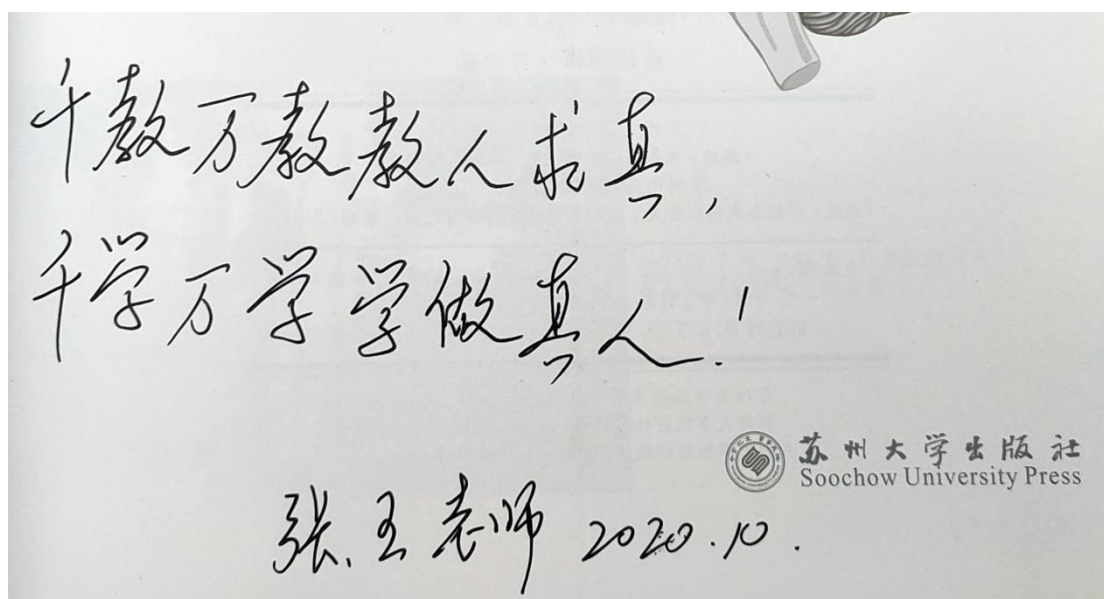 千教万教教人求真,
千学万学学做真人!
苏州大学出版社
Soochow University Press
张、王老师 2020.10.